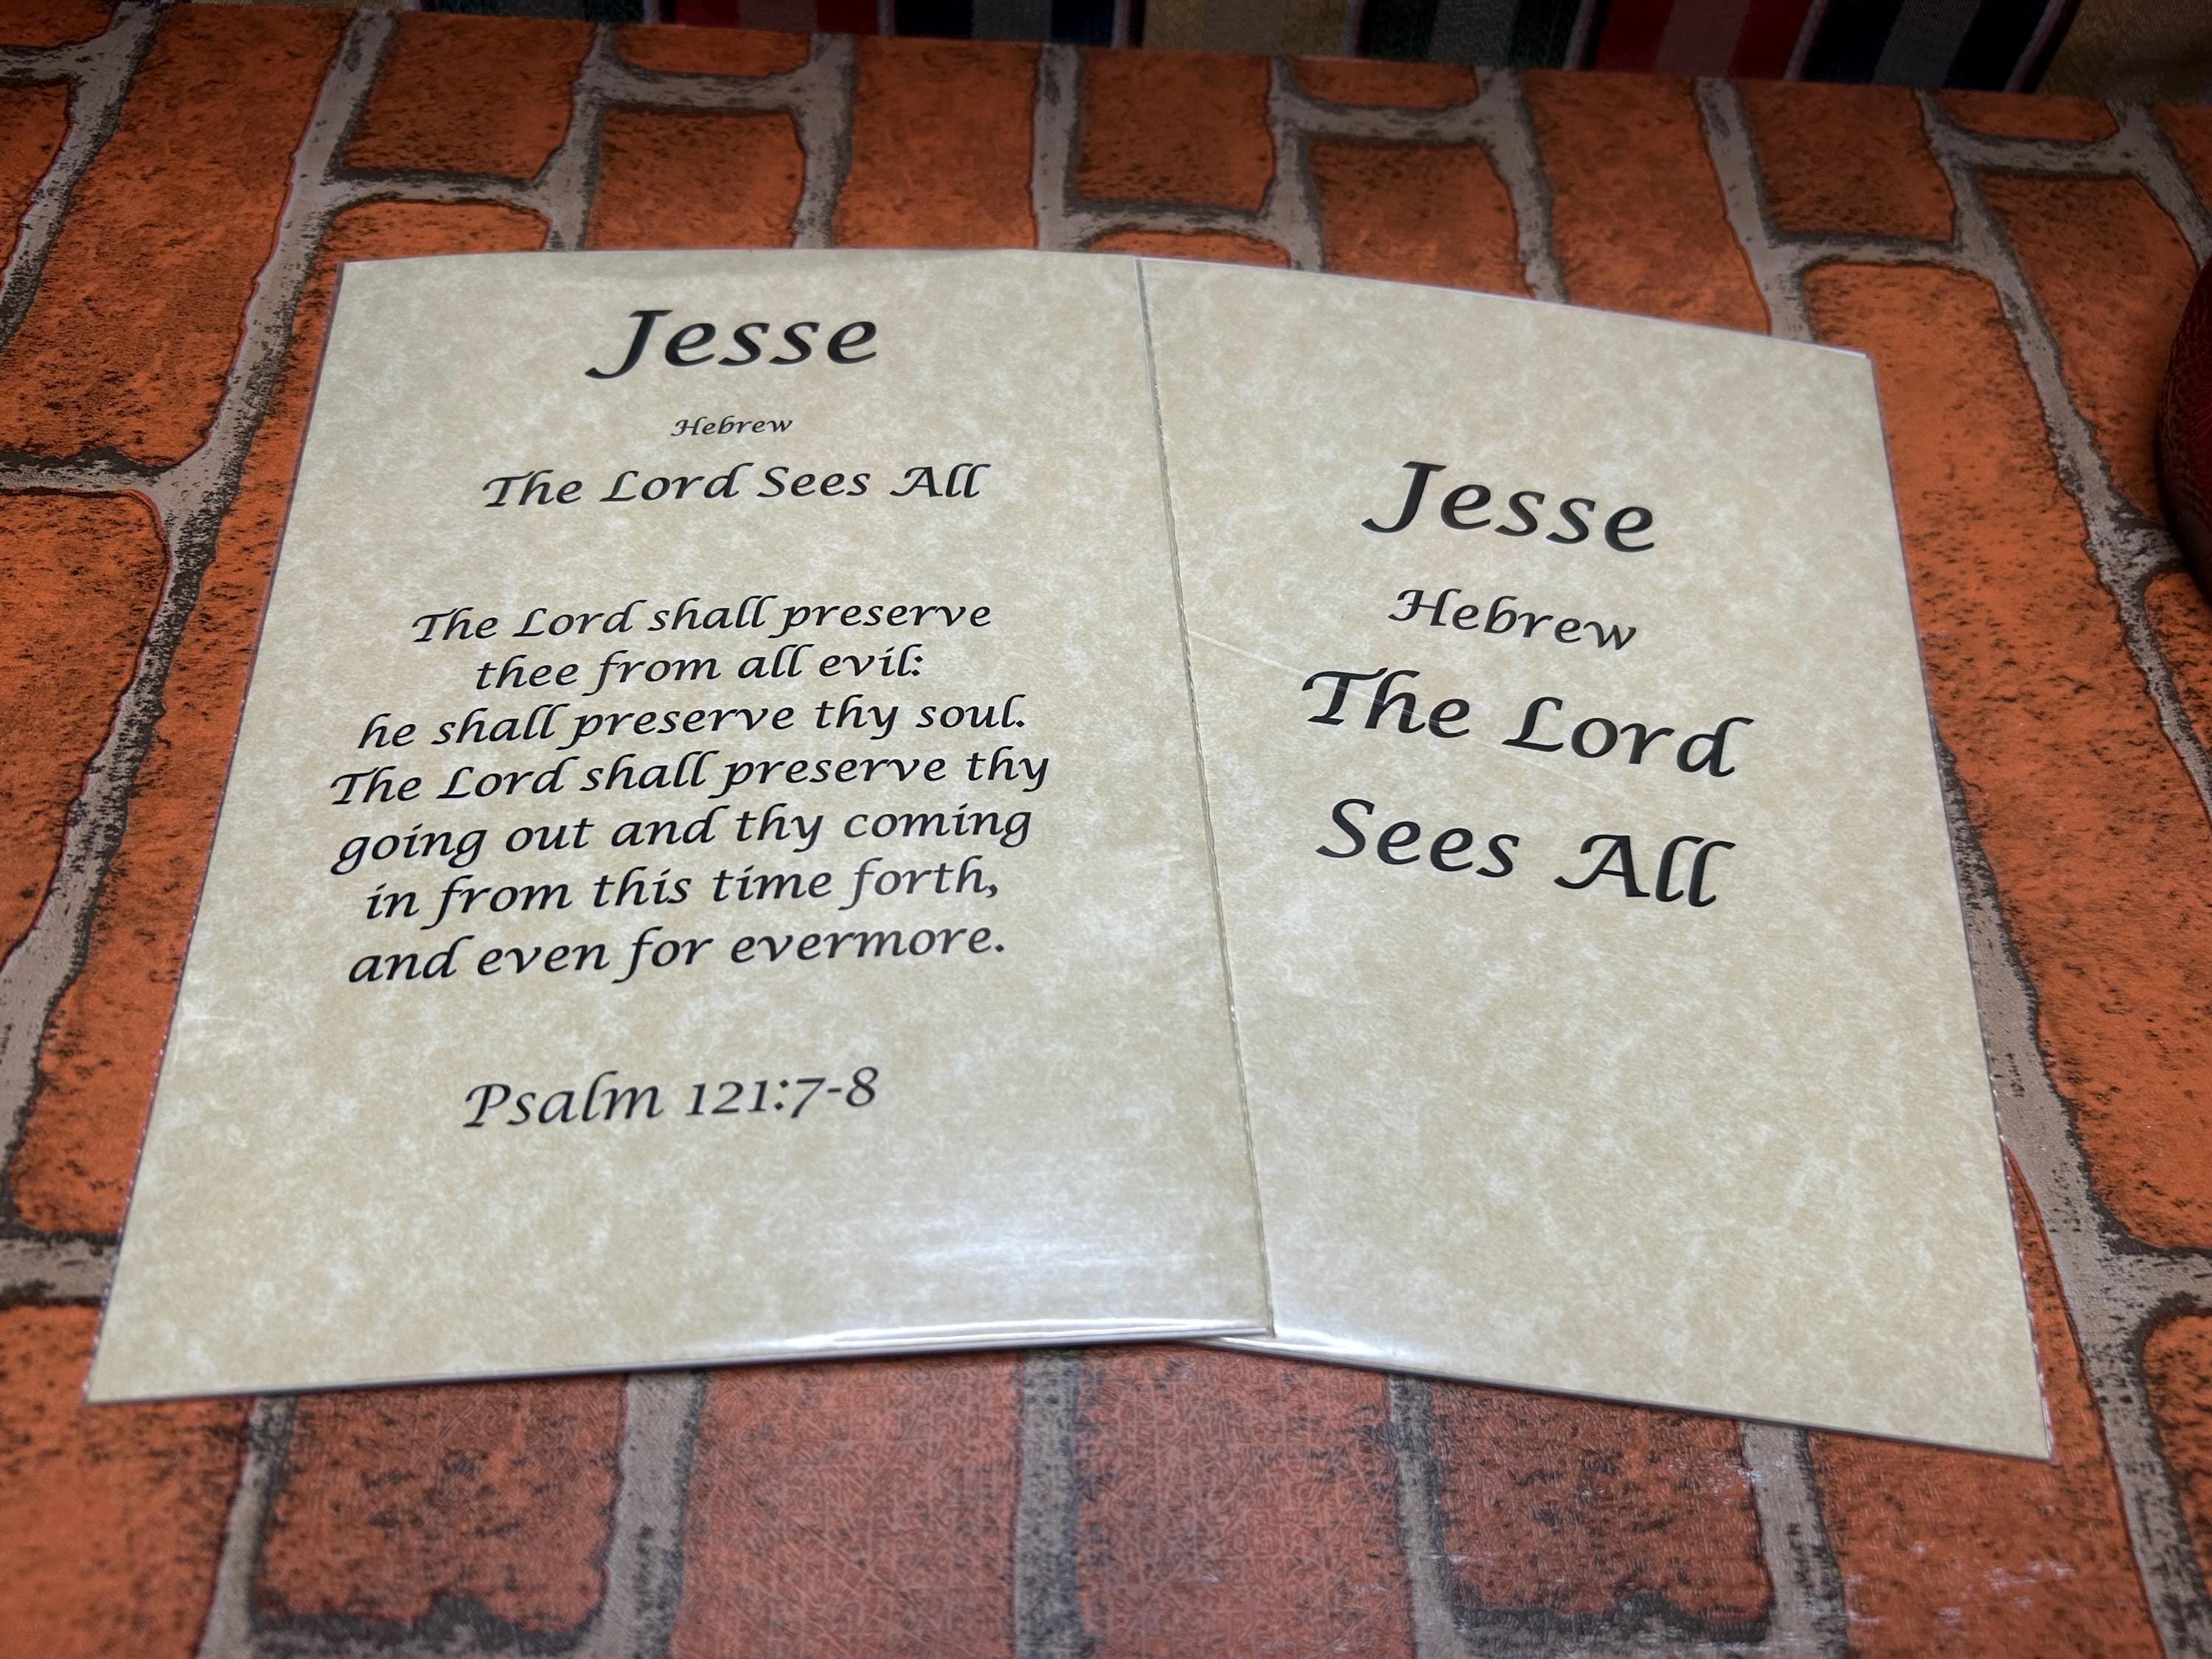 Jesse
Hebrew
The Lord Sees All
The Lord shall preserve
thee from all evil:
he shall preserve thy soul.
The Lord shall preserve thy
going out and thy coming
in from this time forth,
and even for evermore.
Psalm 121:7-8
Jesse
Hebrew
The Lord
Sees All